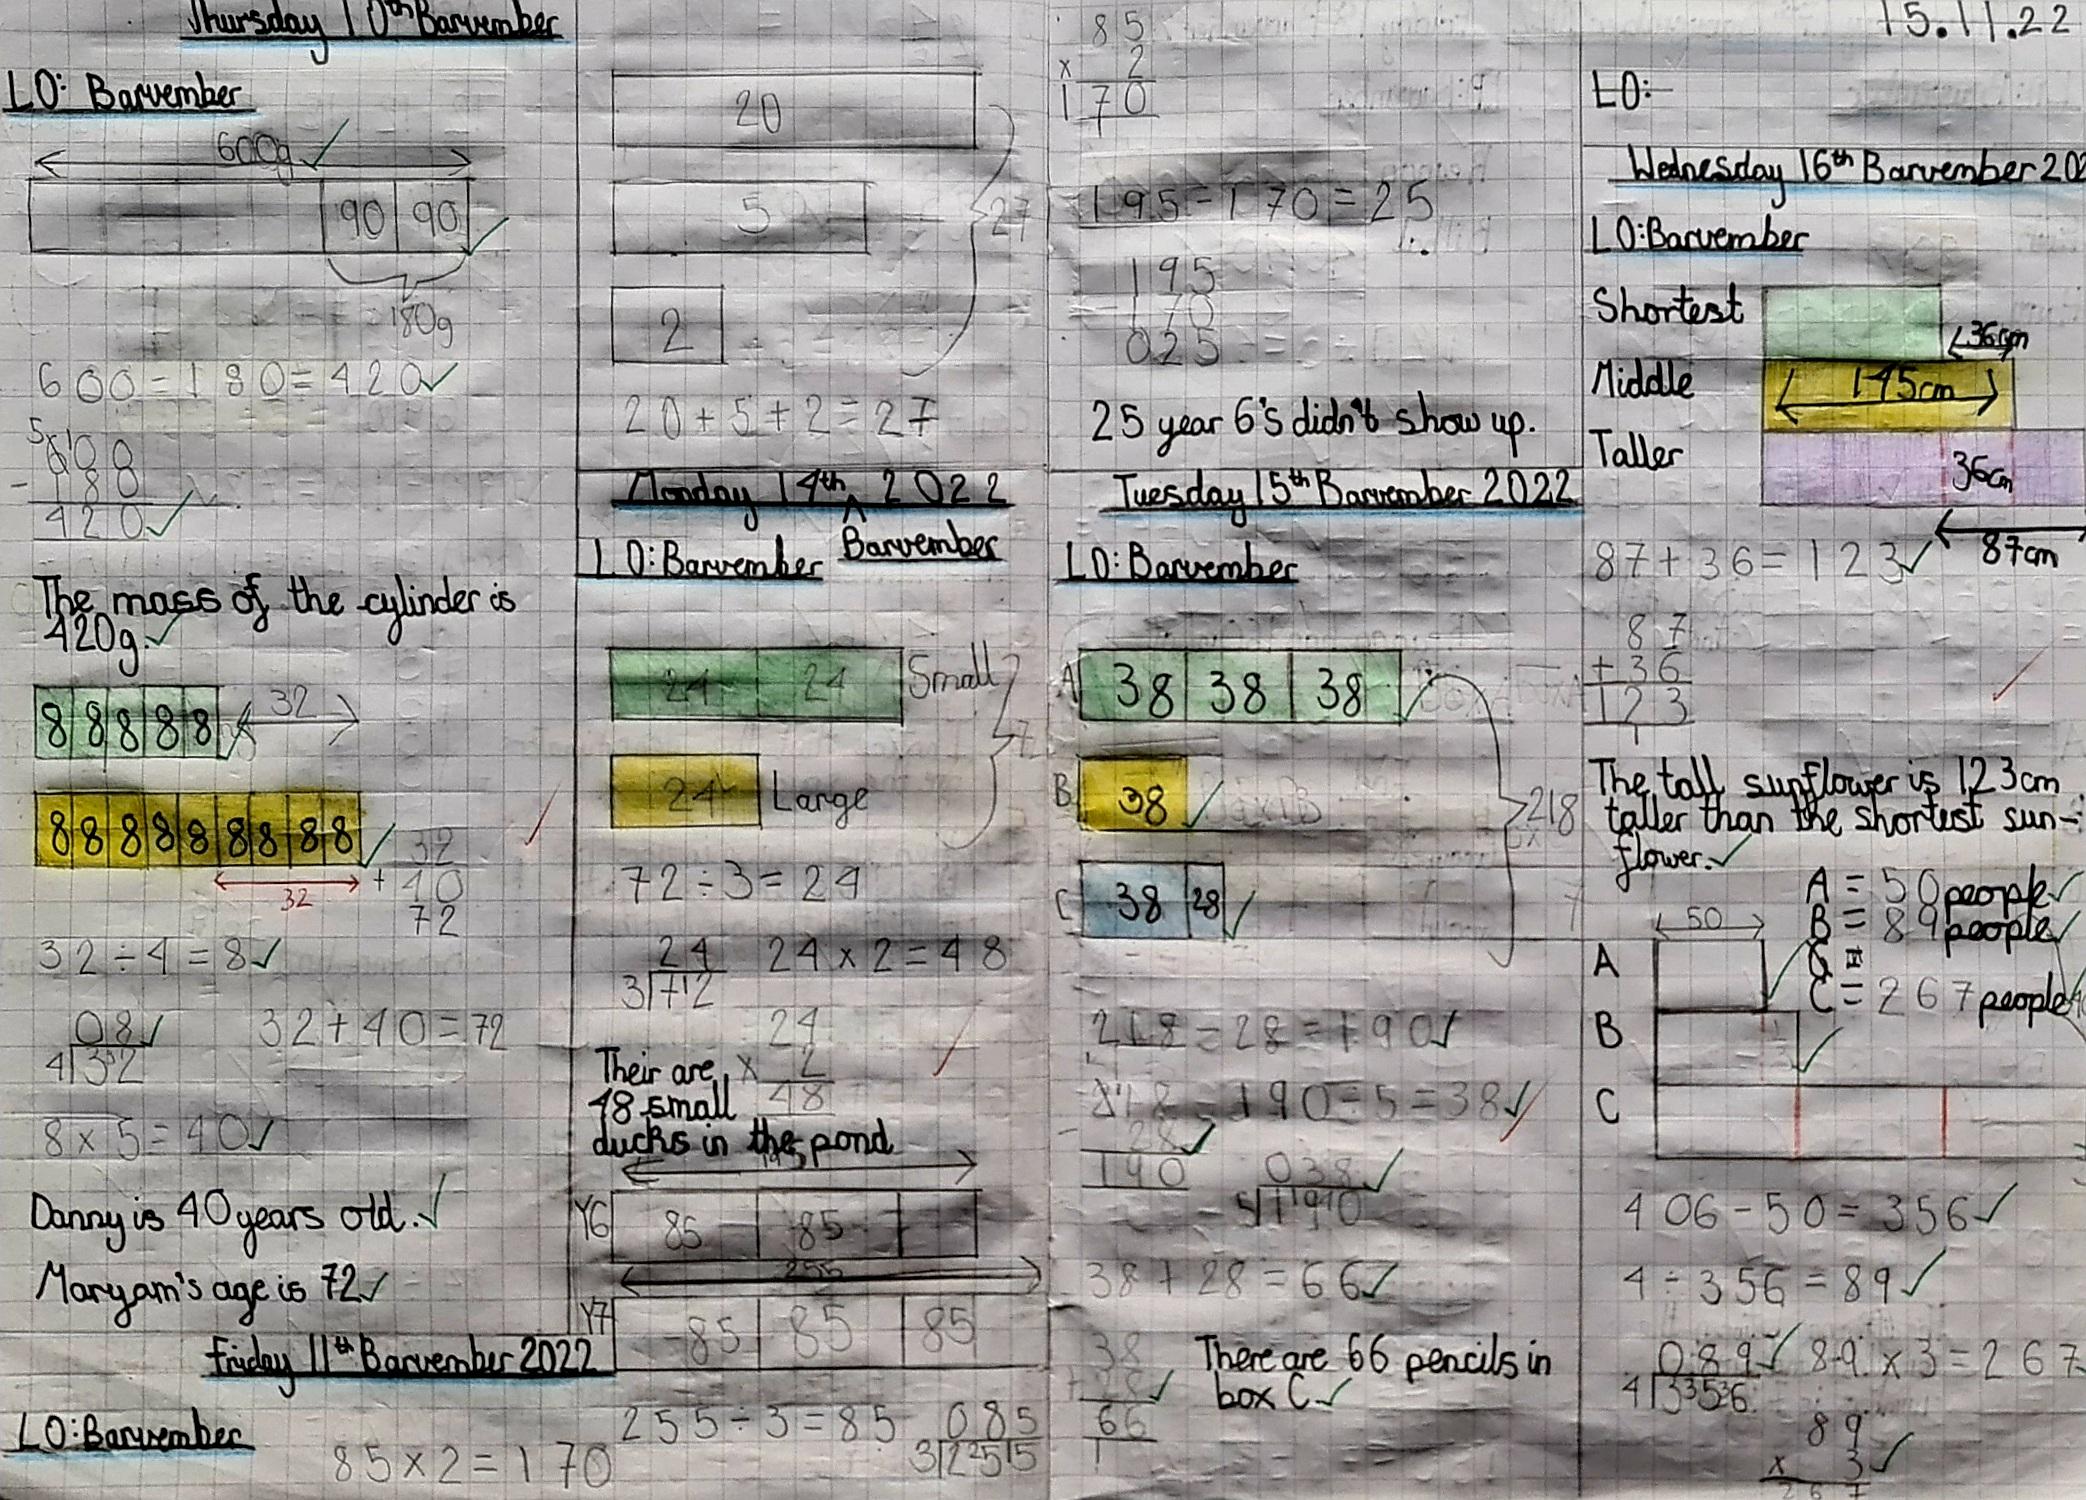 Thursday 10th Barvember
LO: Barvember
600g
90 90
180g
600 - 180 = 420
5
600
- 180
420
The mass of the cylinder is
420g.
8 8 8 8 8
32
8 8 8 8 8 8 8 8 8
32
32
+ 40
72
32 ÷ 4 = 8
08
4 32
32 + 40 = 72
8 x 5 = 40
Danny is 40 years old.
Maryam's age is 72
Friday 11th Barvember 2022
LO: Barvember
85 x 2 = 170
20
5
27
2
20 + 5 + 2 = 27
Monday 14th ^ 2022
Barvember
LO: Barvember
24 24 Small
24 Large
72 ÷ 3 = 24
24
3 712
24 x 2 = 48
24
x 2
48
Their are
48 small
ducks in the pond
195
Y6 85 85
255
Y7 85 85 85
255 ÷ 3 = 85
085
3 22515
85
x 2
170
195 - 170 = 25
195
170
025
25 year 6's didn't show up.
Tuesday 15th Barvember 2022
LO: Barvember
A 38 38 38
B 38
218
C 38 28
218 - 28 = 190
190 ÷ 5 = 38
218
- 28
190
038
5 1190
38 + 28 = 66
38
+ 28
66
1
There are 66 pencils in
box C.
15.11.22
LO:
Wednesday 16th Barvember 202
LO: Barvember
Shortest
36cm
Middle 145cm
Taller 36cm
87cm
87 + 36 = 123
87
+ 36
123
1
The tall sunflower is 123cm
taller than the shortest sun-
flower.
A = 50 people
B = 89 people
C = 267 people
50
A
B
C
406 - 50 = 356
4 ÷ 356 = 89
089
4 33536
89 x 3 = 267
89
x 3
267